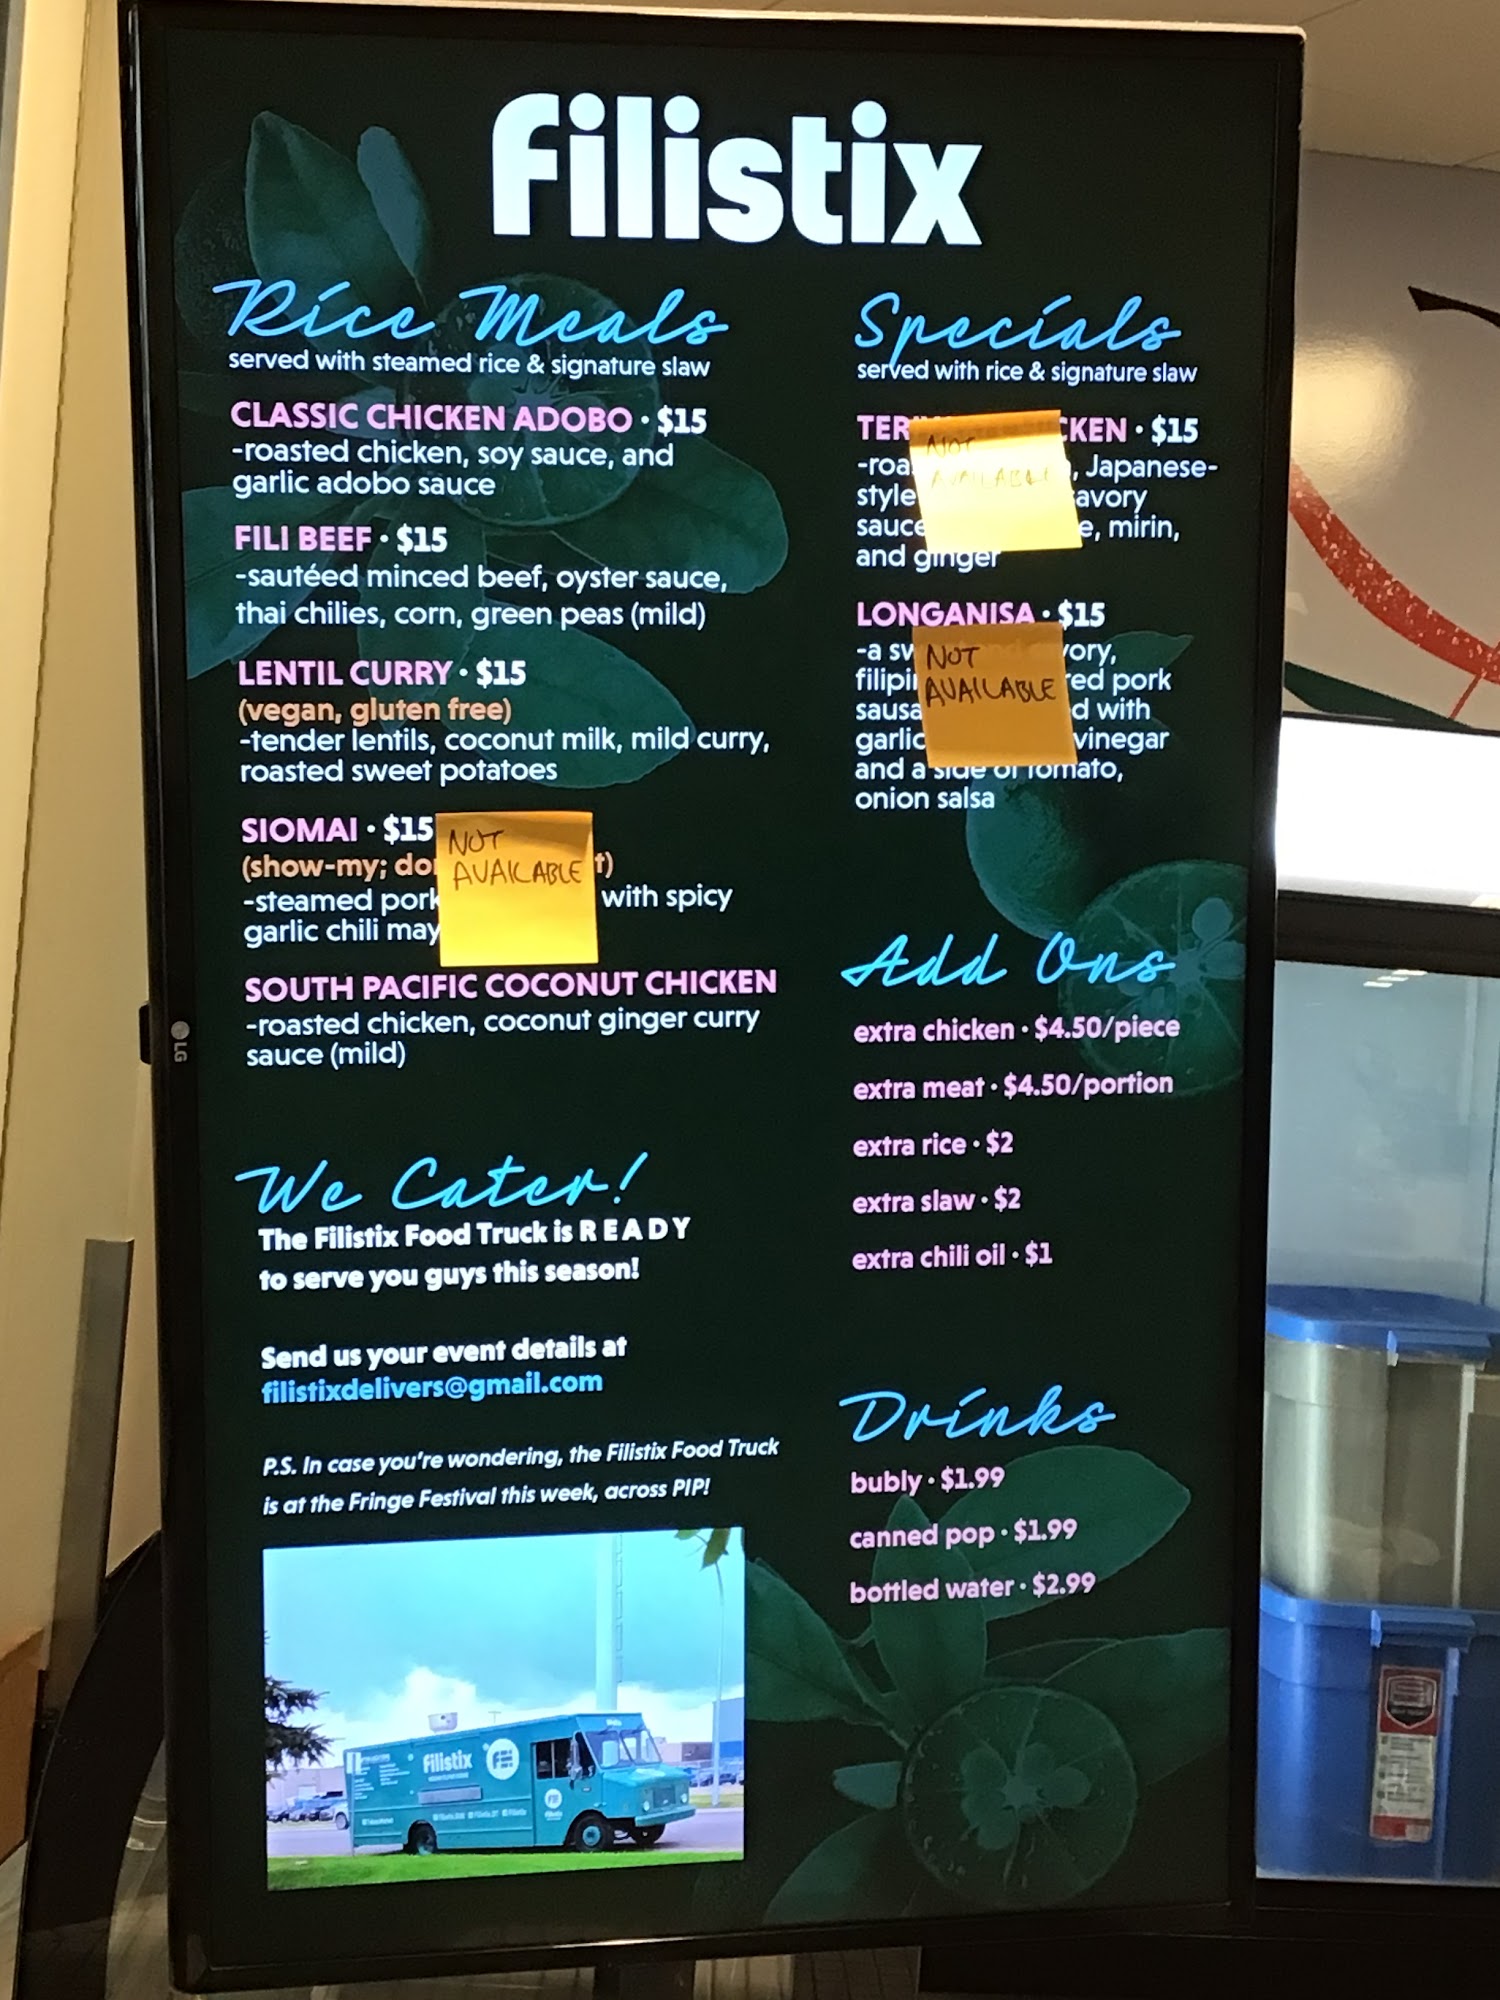 filistix
Rice Meals
served with steamed rice & signature slaw
CLASSIC CHICKEN ADOBO · $15
-roasted chicken, soy sauce, and
garlic adobo sauce
FILI BEEF · $15
-sautéed minced beef, oyster sauce,
thai chilies, corn, green peas (mild)
LENTIL CURRY · $15
(vegan, gluten free)
-tender lentils, coconut milk, mild curry,
roasted sweet potatoes
SIOMAI · $15
(show-my;
-steamed with spicy
garlic chili
NOT
AVAILABLE
SOUTH PACIFIC COCONUT CHICKEN
-roasted chicken, coconut ginger curry
sauce (mild)
We Cater!
The Filistix Food Truck is READY
to serve you guys this season!
Send us your event details at
filistixdelivers@gmail.com
P.S. In case you're wondering, the Filistix Food Truck
is at the Fringe Festival this week, across PIP!
filistix
Specials
served with rice & signature slaw
· $15
Japanese-
style
mirin,
and ginger
NOT
AVAILABLE
LONGANISA · $15
-a
pork
with
vinegar
and a side of tomato,
onion salsa
NOT
AVAILABLE
Add Ons
extra chicken · $4.50/piece
extra meat · $4.50/portion
extra rice · $2
extra slaw · $2
extra chili oil · $1
Drinks
bubly · $1.99
canned pop · $1.99
bottled water · $2.99
LG